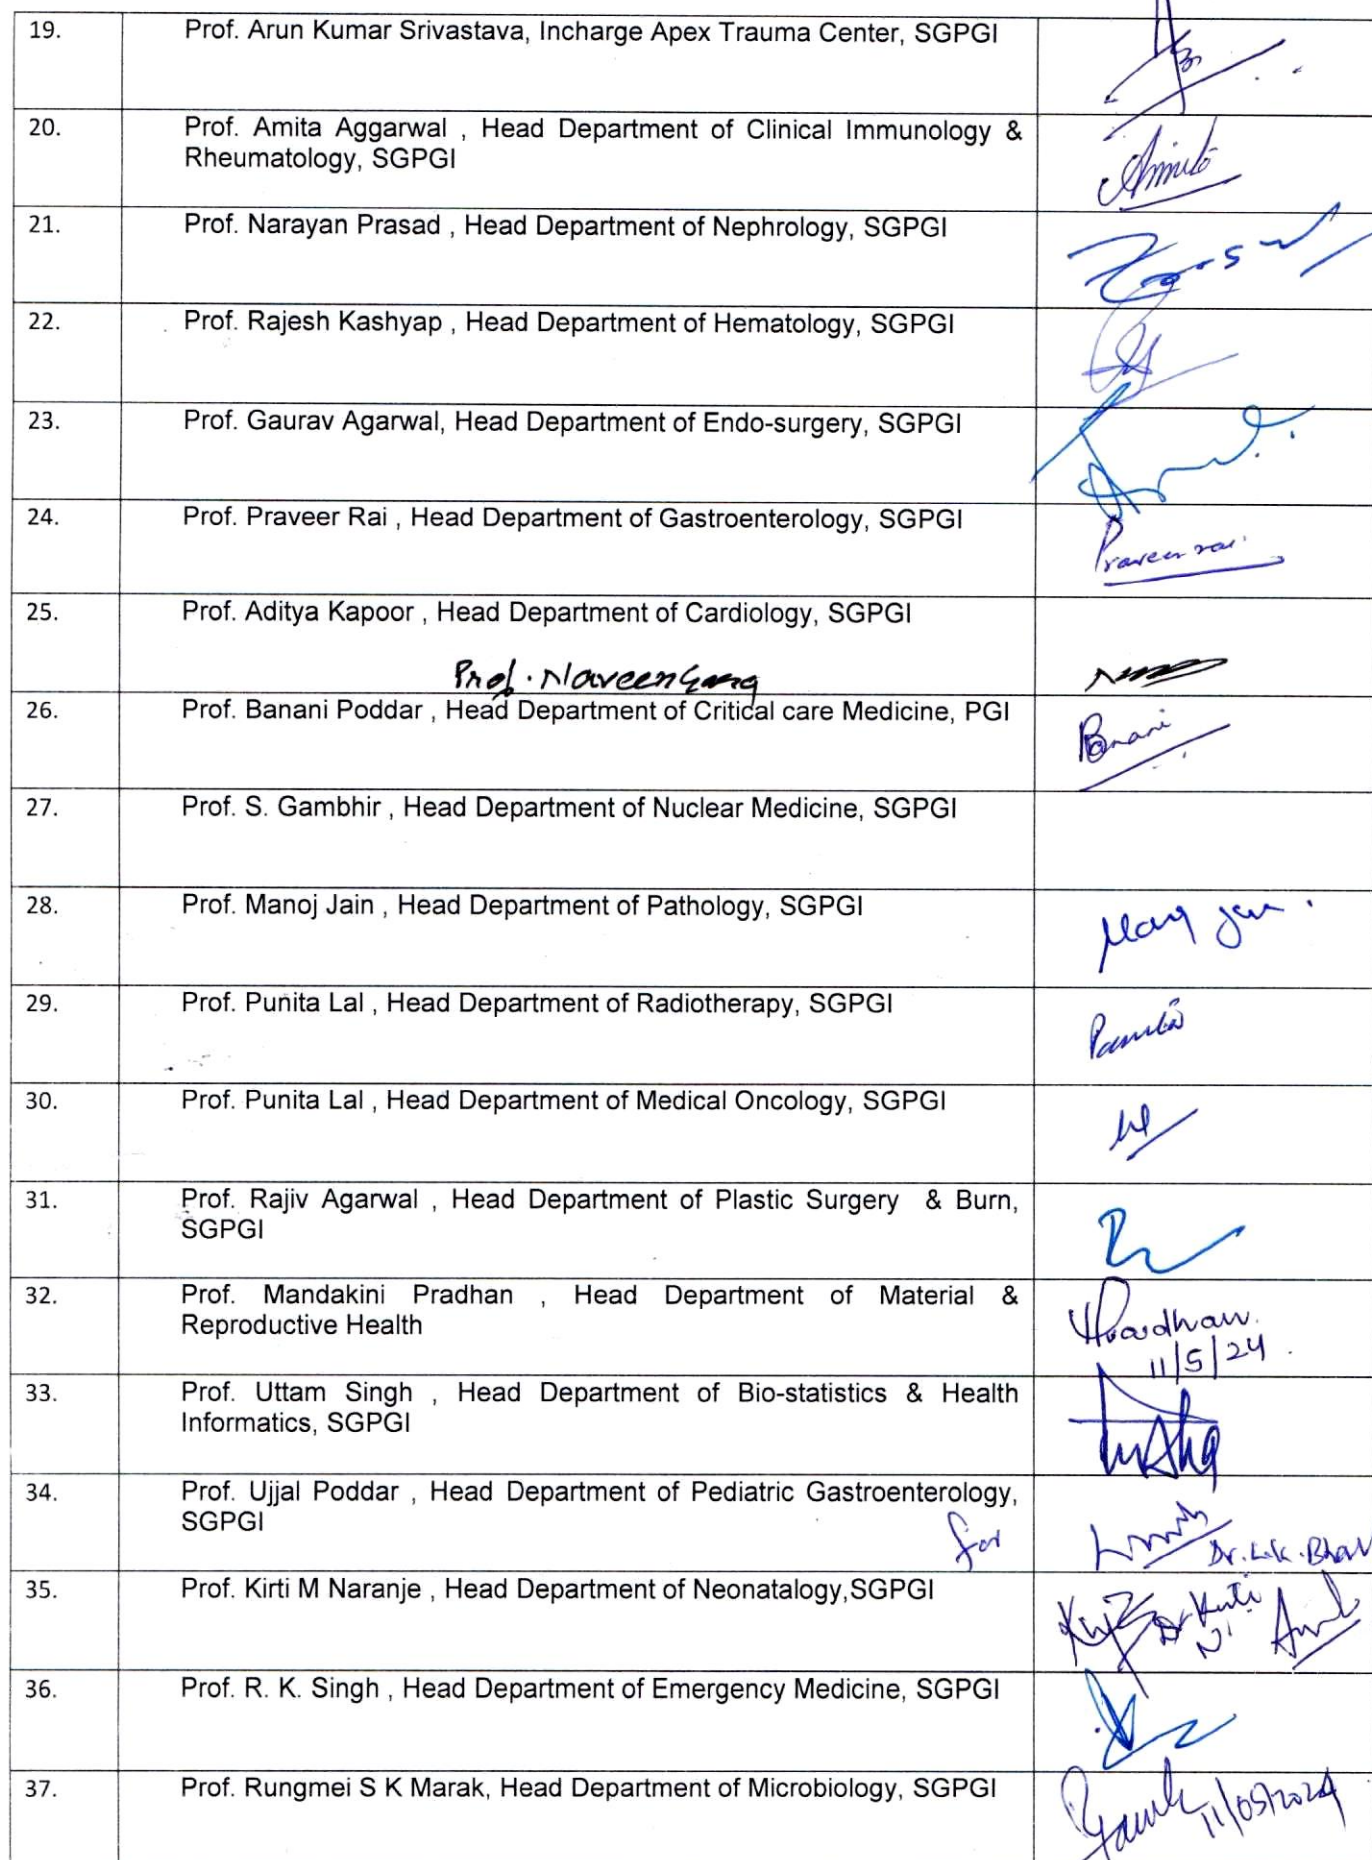 19. Prof. Arun Kumar Srivastava, Incharge Apex Trauma Center, SGPGI
20. Prof. Amita Aggarwal , Head Department of Clinical Immunology &
Rheumatology, SGPGI
Amita
21. Prof. Narayan Prasad , Head Department of Nephrology, SGPGI
22. Prof. Rajesh Kashyap , Head Department of Hematology, SGPGI
23. Prof. Gaurav Agarwal, Head Department of Endo-surgery, SGPGI
24. Prof. Praveer Rai , Head Department of Gastroenterology, SGPGI
Praveer rai
25. Prof. Aditya Kapoor , Head Department of Cardiology, SGPGI
Prof. Naveen Garg
26. Prof. Banani Poddar , Head Department of Critical care Medicine, PGI
Banani
27. Prof. S. Gambhir , Head Department of Nuclear Medicine, SGPGI
28. Prof. Manoj Jain , Head Department of Pathology, SGPGI
Manoj Jain
29. Prof. Punita Lal , Head Department of Radiotherapy, SGPGI
Punita
30. Prof. Punita Lal , Head Department of Medical Oncology, SGPGI
31. Prof. Rajiv Agarwal , Head Department of Plastic Surgery & Burn,
SGPGI
32. Prof. Mandakini Pradhan , Head Department of Material &
Reproductive Health
Pradhan
11/5/24
33. Prof. Uttam Singh , Head Department of Bio-statistics & Health
Informatics, SGPGI
34. Prof. Ujjal Poddar , Head Department of Pediatric Gastroenterology,
SGPGI
for Dr. L.K.
35. Prof. Kirti M Naranje , Head Department of Neonatalogy,SGPGI
Dr Kirti
36. Prof. R. K. Singh , Head Department of Emergency Medicine, SGPGI
37. Prof. Rungmei S K Marak, Head Department of Microbiology, SGPGI
11/05/2024